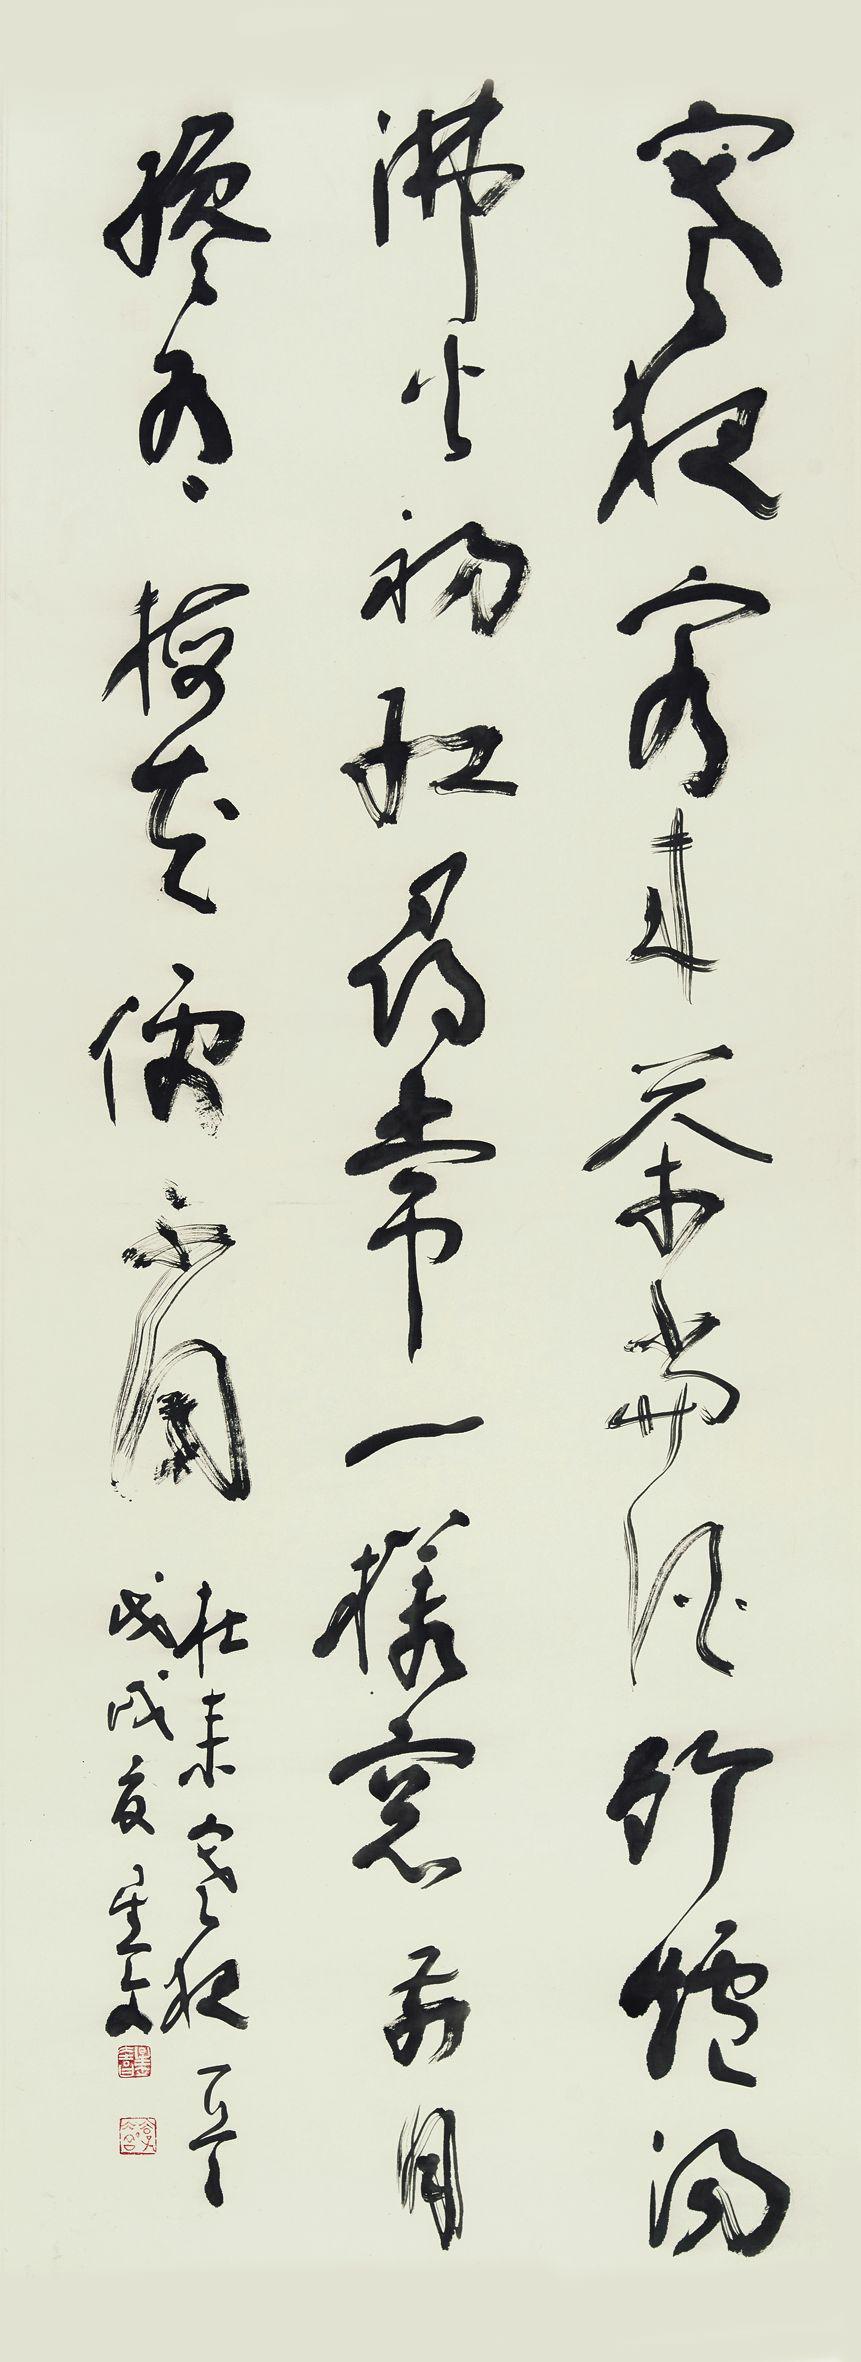 寒夜客来茶当酒竹炉汤
沸火初红寻常一样窗前月
才有梅花便不同
杜耒寒夜一首
戊戌夏星文